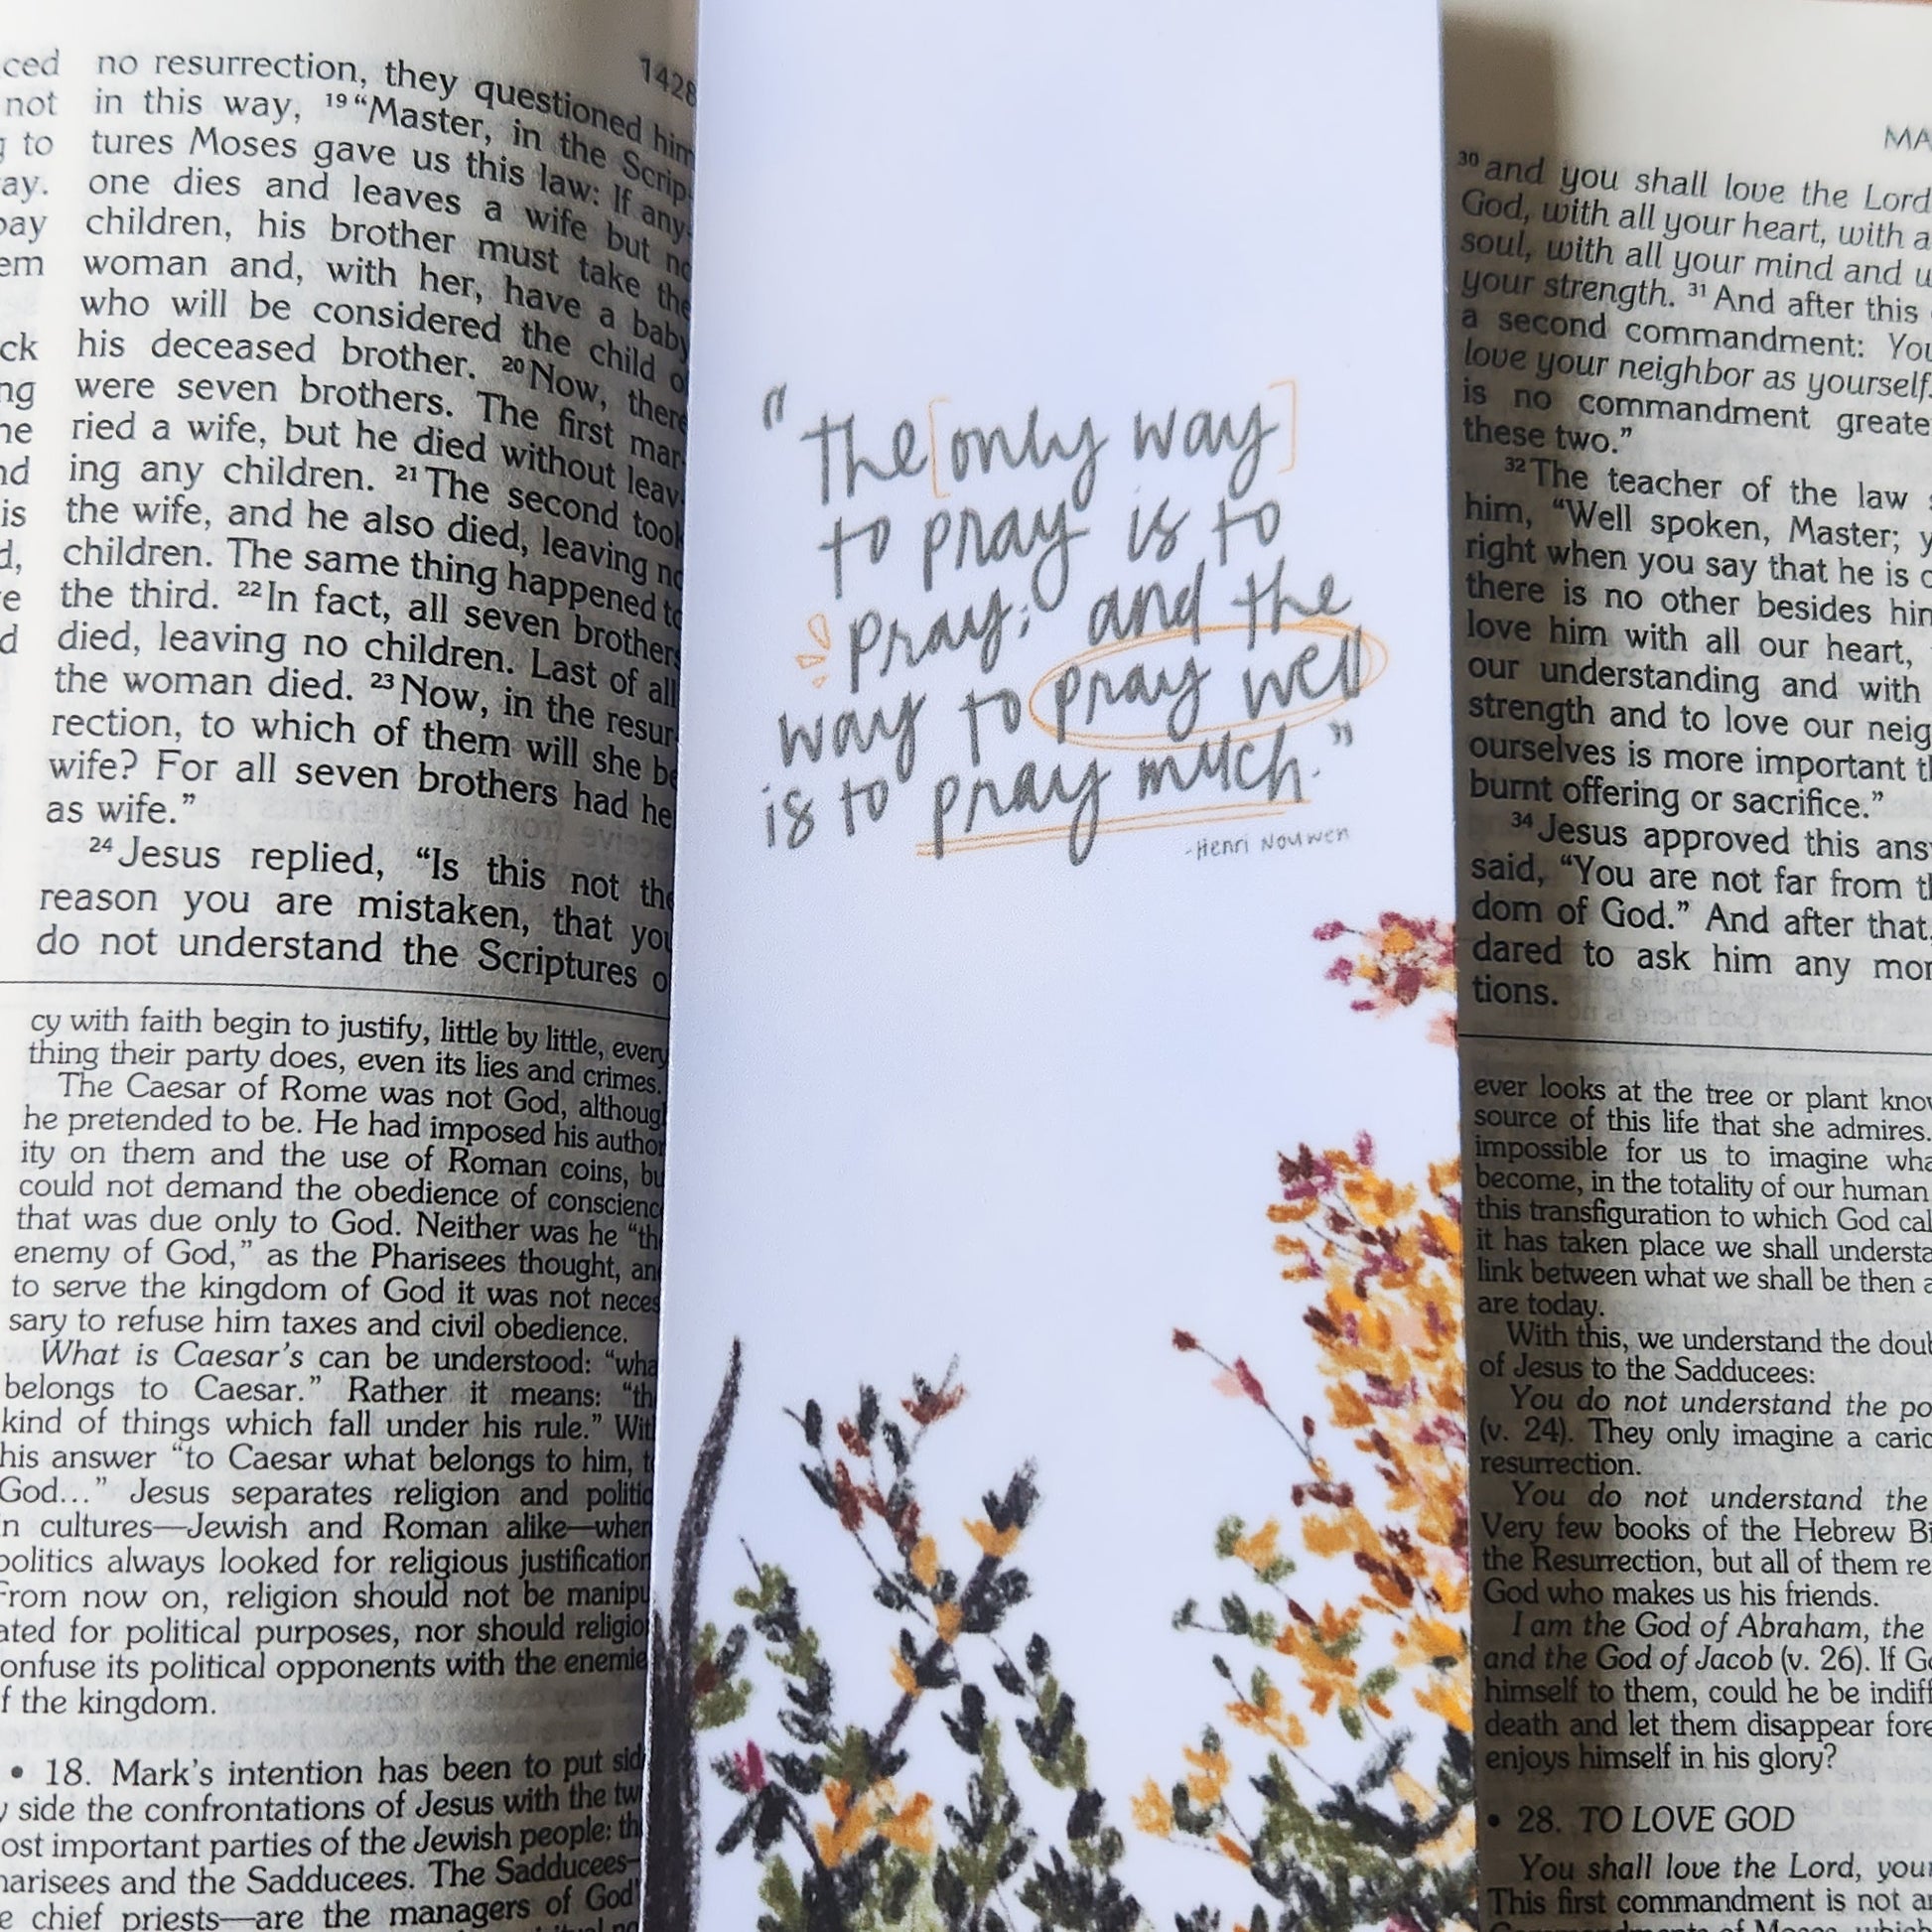 1428
ced
not
to
ay.
pay
em
ck
ng
he
nd
is
d,
re
d
no resurrection, they questioned him
in this way, 19 “Master, in the Scrip-
tures Moses gave us this law: If any-
one dies and leaves a wife but no
children, his brother must take the
woman and, with her, have a baby
who will be considered the child of
his deceased brother. 20 Now, there
were seven brothers. The first mar-
ried a wife, but he died without leav-
ing any children. 21 The second took
the wife, and he also died, leaving no
children. The same thing happened to
the third. 22 In fact, all seven brothers
died, leaving no children. Last of all
the woman died. 23 Now, in the resur-
rection, to which of them will she be
wife? For all seven brothers had her
as wife.”
24 Jesus replied, “Is this not the
reason you are mistaken, that you
do not understand the Scriptures o
cy with faith begin to justify, little by little, every
thing their party does, even its lies and crimes.
The Caesar of Rome was not God, althoug
he pretended to be. He had imposed his author
ity on them and the use of Roman coins, bu
could not demand the obedience of conscienc
that was due only to God. Neither was he “th
enemy of God,” as the Pharisees thought, an
to serve the kingdom of God it was not neces
sary to refuse him taxes and civil obedience.
What is Caesar’s can be understood: “wha
belongs to Caesar.” Rather it means: “th
kind of things which fall under his rule.” Wit
his answer “to Caesar what belongs to him, t
God...” Jesus separates religion and politic
n cultures—Jewish and Roman alike—wher
politics always looked for religious justification
From now on, religion should not be manipu
ated for political purposes, nor should religio
onfuse its political opponents with the enemie
f the kingdom.
• 18. Mark’s intention has been to put sid
y side the confrontations of Jesus with the tw
ost important parties of the Jewish people: th
harisees and the Sadducees. The Sadducees—
e chief priests—are the managers of God’
“the [only way]
to pray is to
pray; and the
way to pray well
is to pray much.”
-Henri Nouwen
MA
30 and you shall love the Lord
God, with all your heart, with a
soul, with all your mind and
your strength. 31 And after this
a second commandment: You
love your neighbor as yourself.
is no commandment greate
these two.”
32 The teacher of the law
him, “Well spoken, Master; y
right when you say that he is o
there is no other besides him
love him with all our heart,
our understanding and with
strength and to love our neig
ourselves is more important th
burnt offering or sacrifice.”
34 Jesus approved this ans
said, “You are not far from th
dom of God.” And after that,
dared to ask him any mor
tions.
ever looks at the tree or plant know
source of this life that she admires.
impossible for us to imagine wha
become, in the totality of our human
this transfiguration to which God cal
it has taken place we shall understa
link between what we shall be then a
are today.
With this, we understand the doub
of Jesus to the Sadducees:
You do not understand the po
(v. 24). They only imagine a caric
resurrection.
You do not understand the
Very few books of the Hebrew Bi
the Resurrection, but all of them re
God who makes us his friends.
I am the God of Abraham, the
and the God of Jacob (v. 26). If Go
himself to them, could he be indiff
death and let them disappear fore
enjoys himself in his glory?
• 28. TO LOVE GOD
You shall love the Lord, your
This first commandment is not a